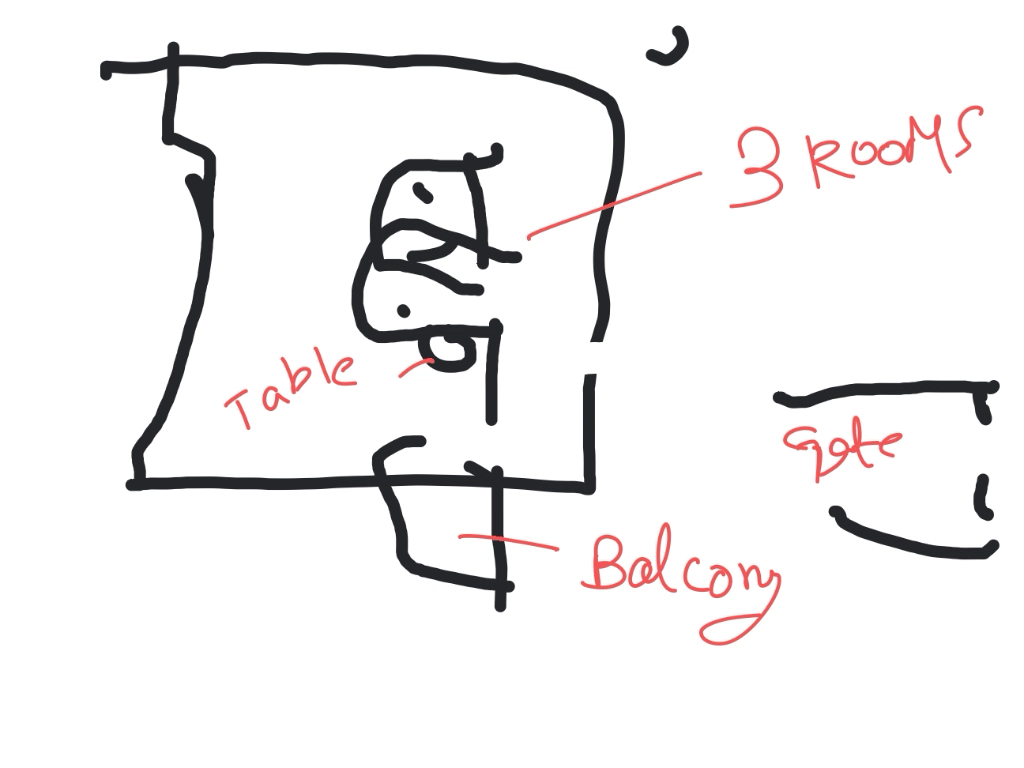 3 ROOMS
Table
gate
Balcony